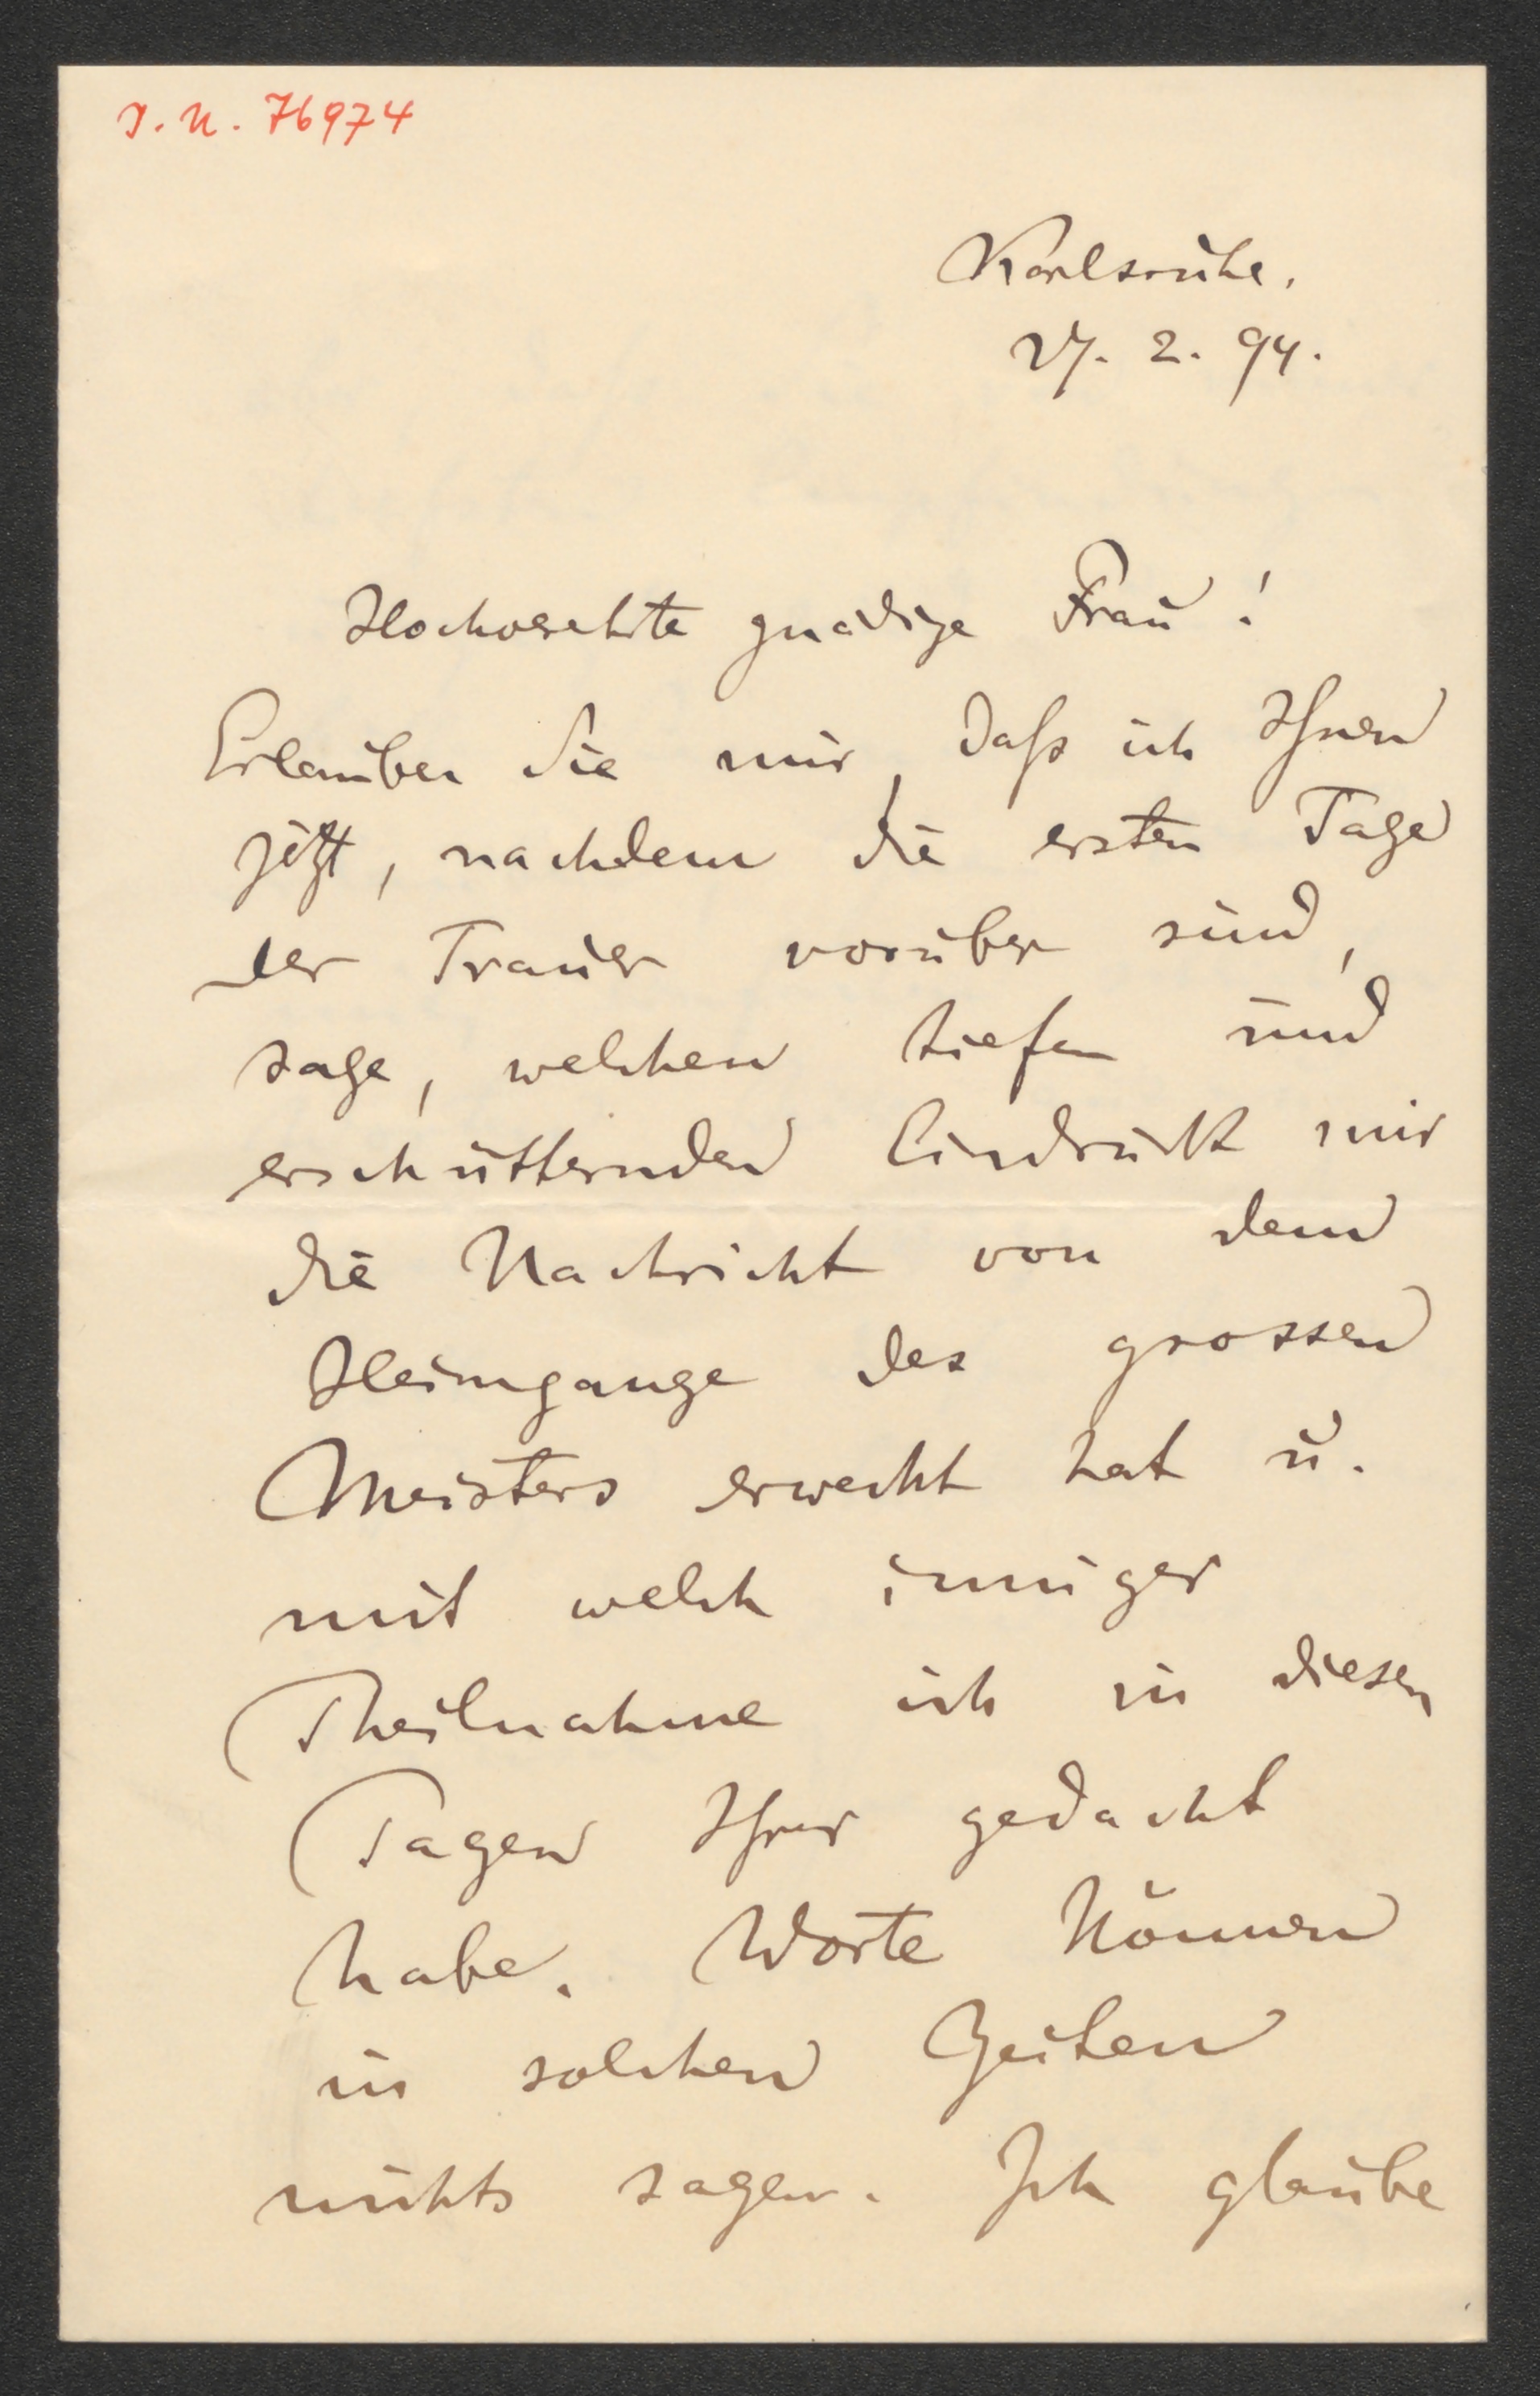 I. N. 76974
Karlsruhe,
27. 2. 94.
Hochverehrte gnädige Frau!
Erlauben Sie mir, daß ich Ihnen
jetzt, nachdem die ersten Tage
der Trauer vorüber sind,
sage, welchen tiefen und
erschütternden Eindruck mir
die Nachricht von dem
Heimgange des grossen
Meisters erweckt hat u.
mit welch inniger
Theilnahme ich in diesen
Tagen Ihrer gedacht
habe. Worte können
in solchen Zeiten
nichts sagen. Ich glaube